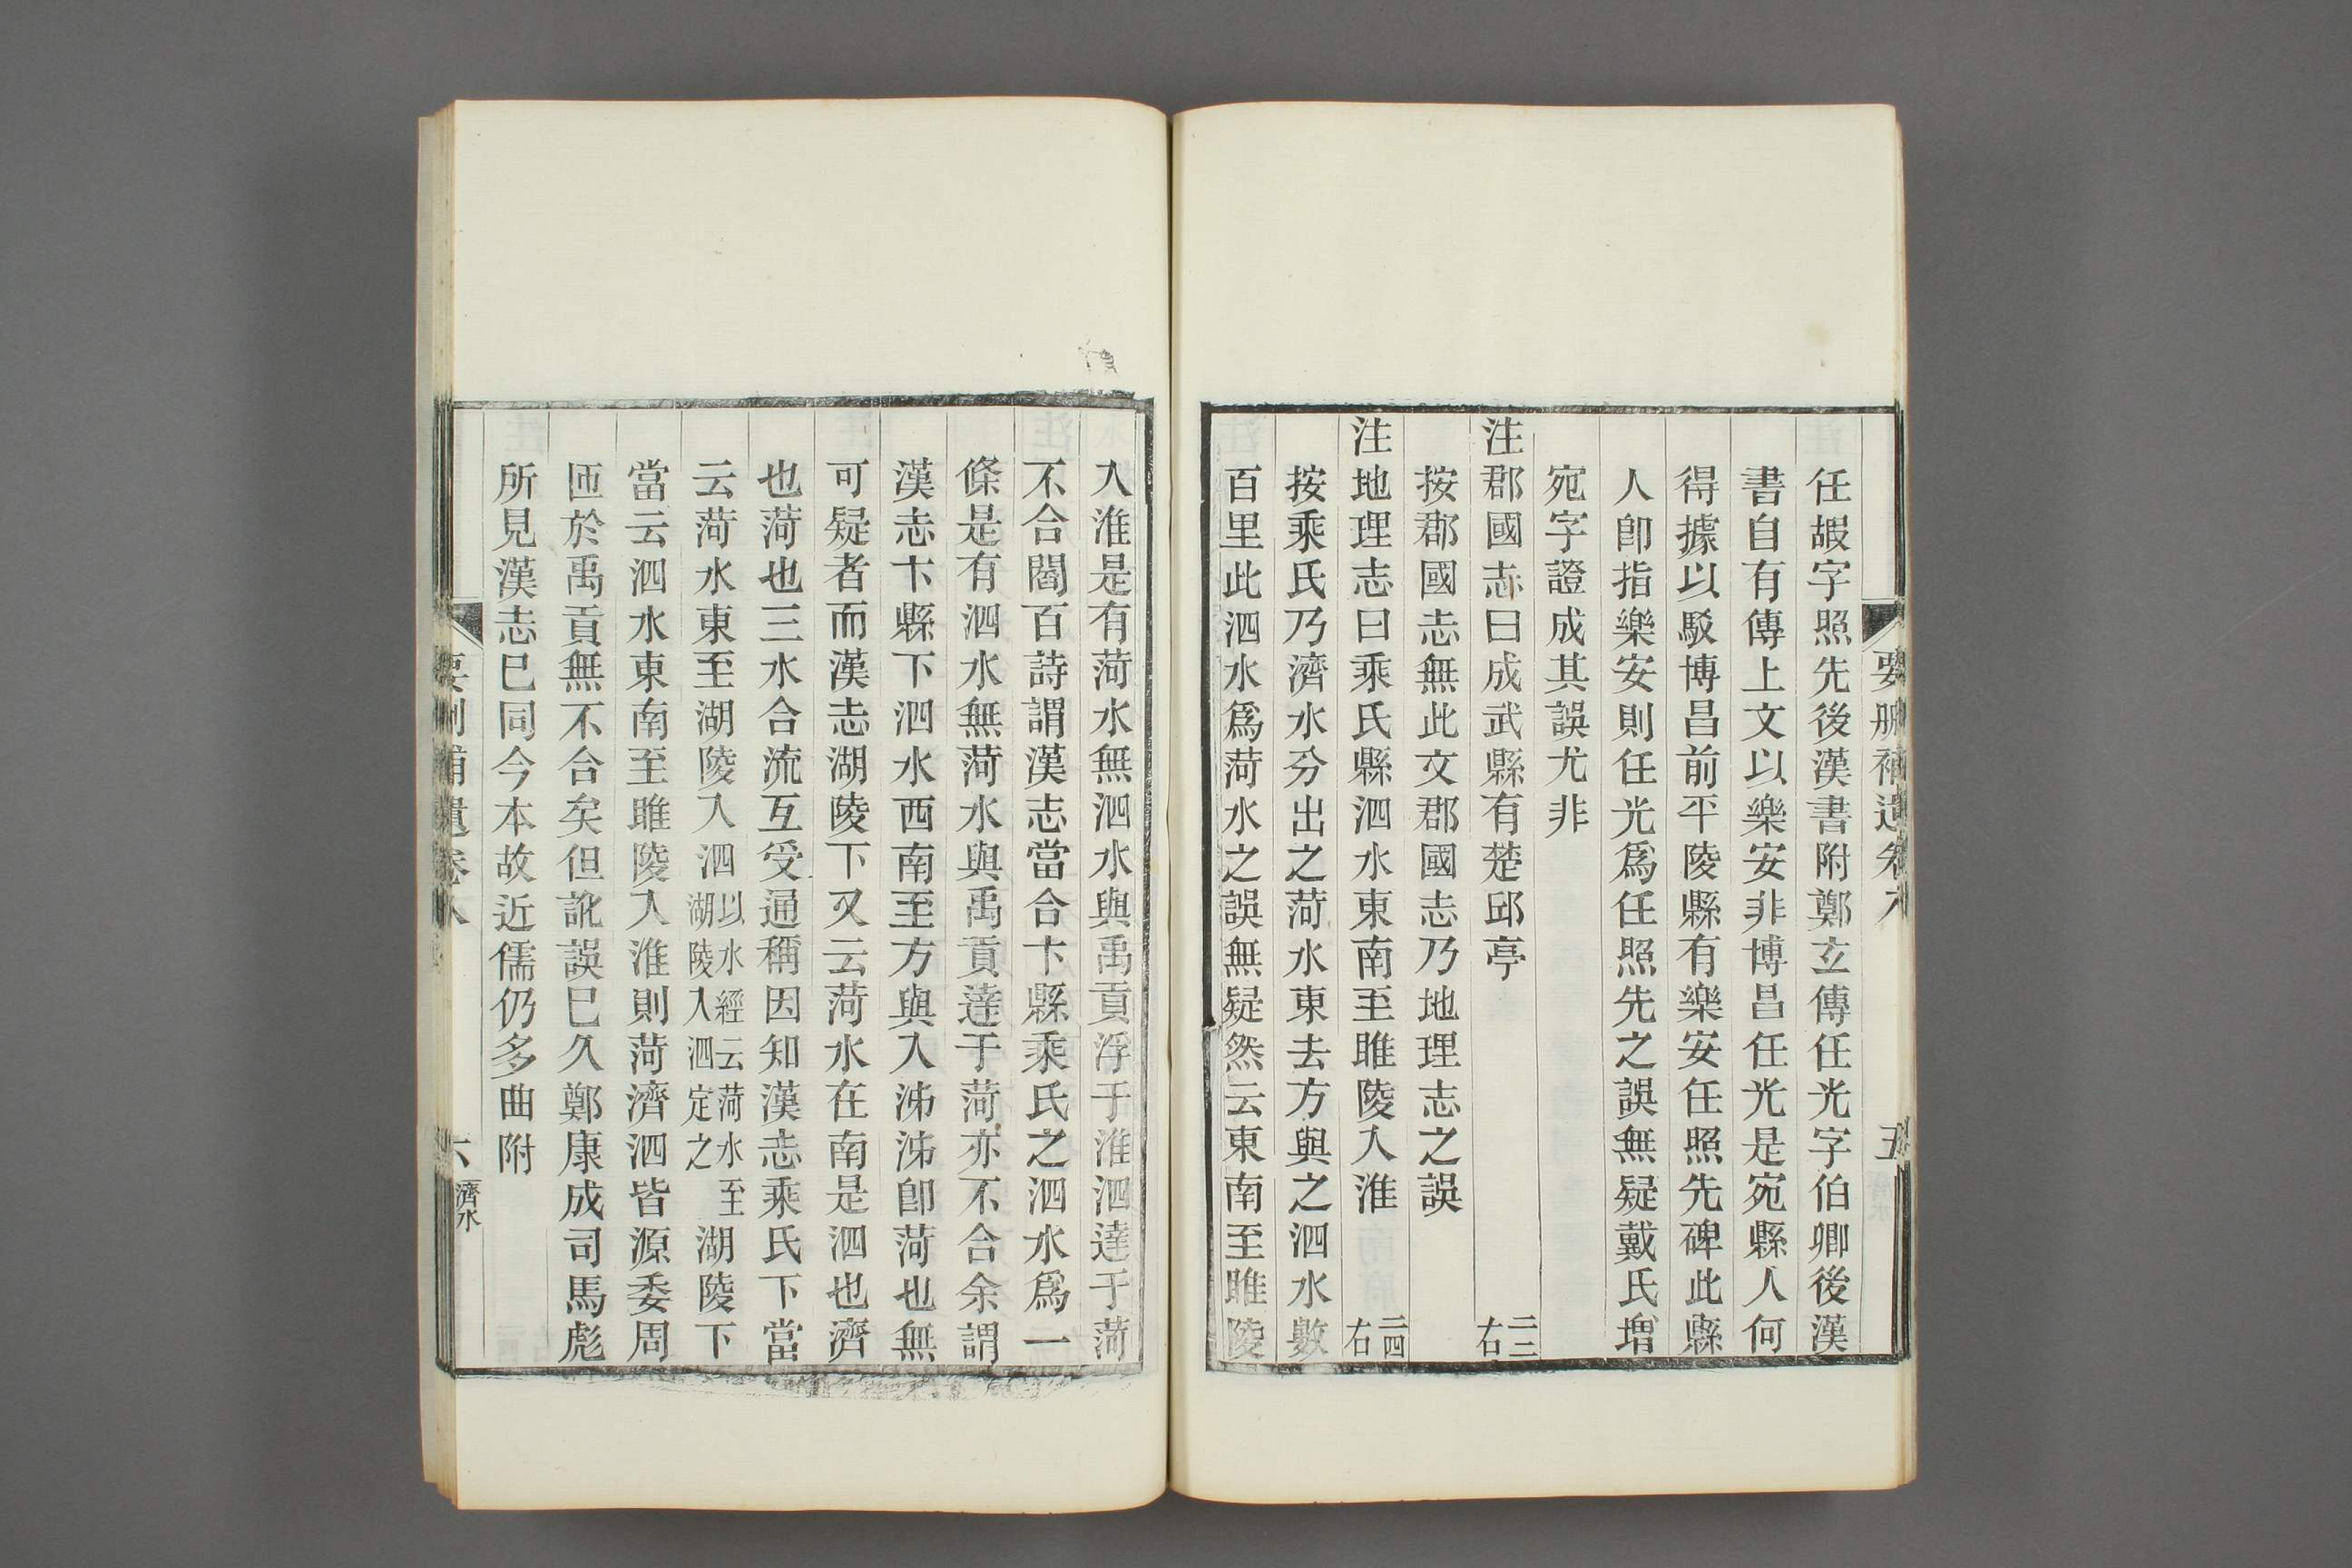 任嘏字照先後漢書附鄭玄傳任光字伯卿後漢
書自有傳上文以樂安非博昌任光是宛縣人何
得據以駁博昌前平陵縣有樂安任照先碑此縣
人卽指樂安則任光爲任照先之誤無疑戴氏增
宛字證成其誤尤非
注郡國志曰成武縣有楚邱亭 二三右
按郡國志無此文郡國志乃地理志之誤
注地理志曰乘氏縣泗水東南至睢陵入淮 二四右
按乘氏乃濟水分出之菏水東去方與之泗水數
百里此泗水爲菏水之誤無疑然云東南至睢陵
入淮是有菏水無泗水與禹貢浮于淮泗達于菏
不合閻百詩謂漢志當合卞縣乘氏之泗水爲一
條是有泗水無菏水與禹貢達于菏亦不合余謂
漢志卞縣下泗水西南至方與入泲泲卽菏也無
可疑者而漢志湖陵下又云菏水在南是泗也濟
也菏也三水合流互受通稱因知漢志乘氏下當
云菏水東至湖陵入泗以水經云菏水至湖陵入泗定之湖陵下
當云泗水東南至睢陵入淮則菏濟泗皆源委周
匝於禹貢無不合矣但訛誤已久鄭康成司馬彪
所見漢志已同今本故近儒仍多曲附
要刪補遺卷八
五
要刪補遺卷八
六
濟水